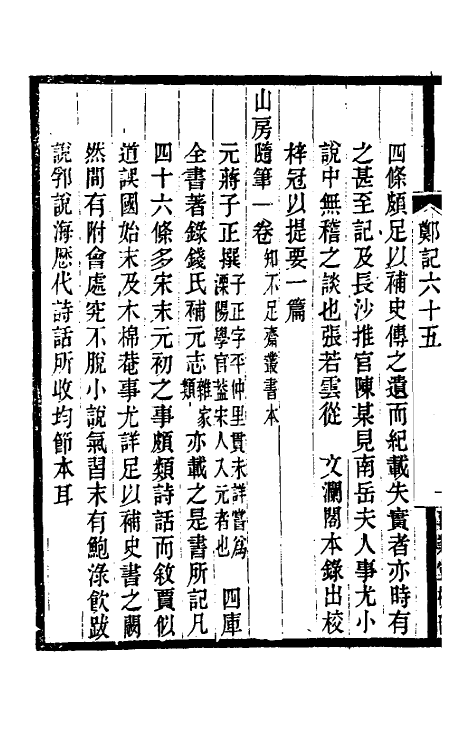 四條頗足以補史傳之遺而紀載失實者亦時有
之甚至記及長沙推官陳某見南岳夫人事尤小
說中無稽之談也張若雲從　文瀾閣本錄出校
梓冠以提要一篇
山房隨筆一卷知不足齋叢書本
元蔣子正撰子正字平仲里貫未詳嘗爲溧陽學官蓋宋人入元者也　四庫
全書著錄錢氏補元志雜家類亦載之是書所記凡
四十六條多宋末元初之事頗類詩話而敘賈似
道誤國始末及木棉菴事尤詳足以補史書之闕
然間有附會處究不脫小說氣習末有鮑淥飮跋
說郛說海歷代詩話所收均節本耳
鄭記六十五